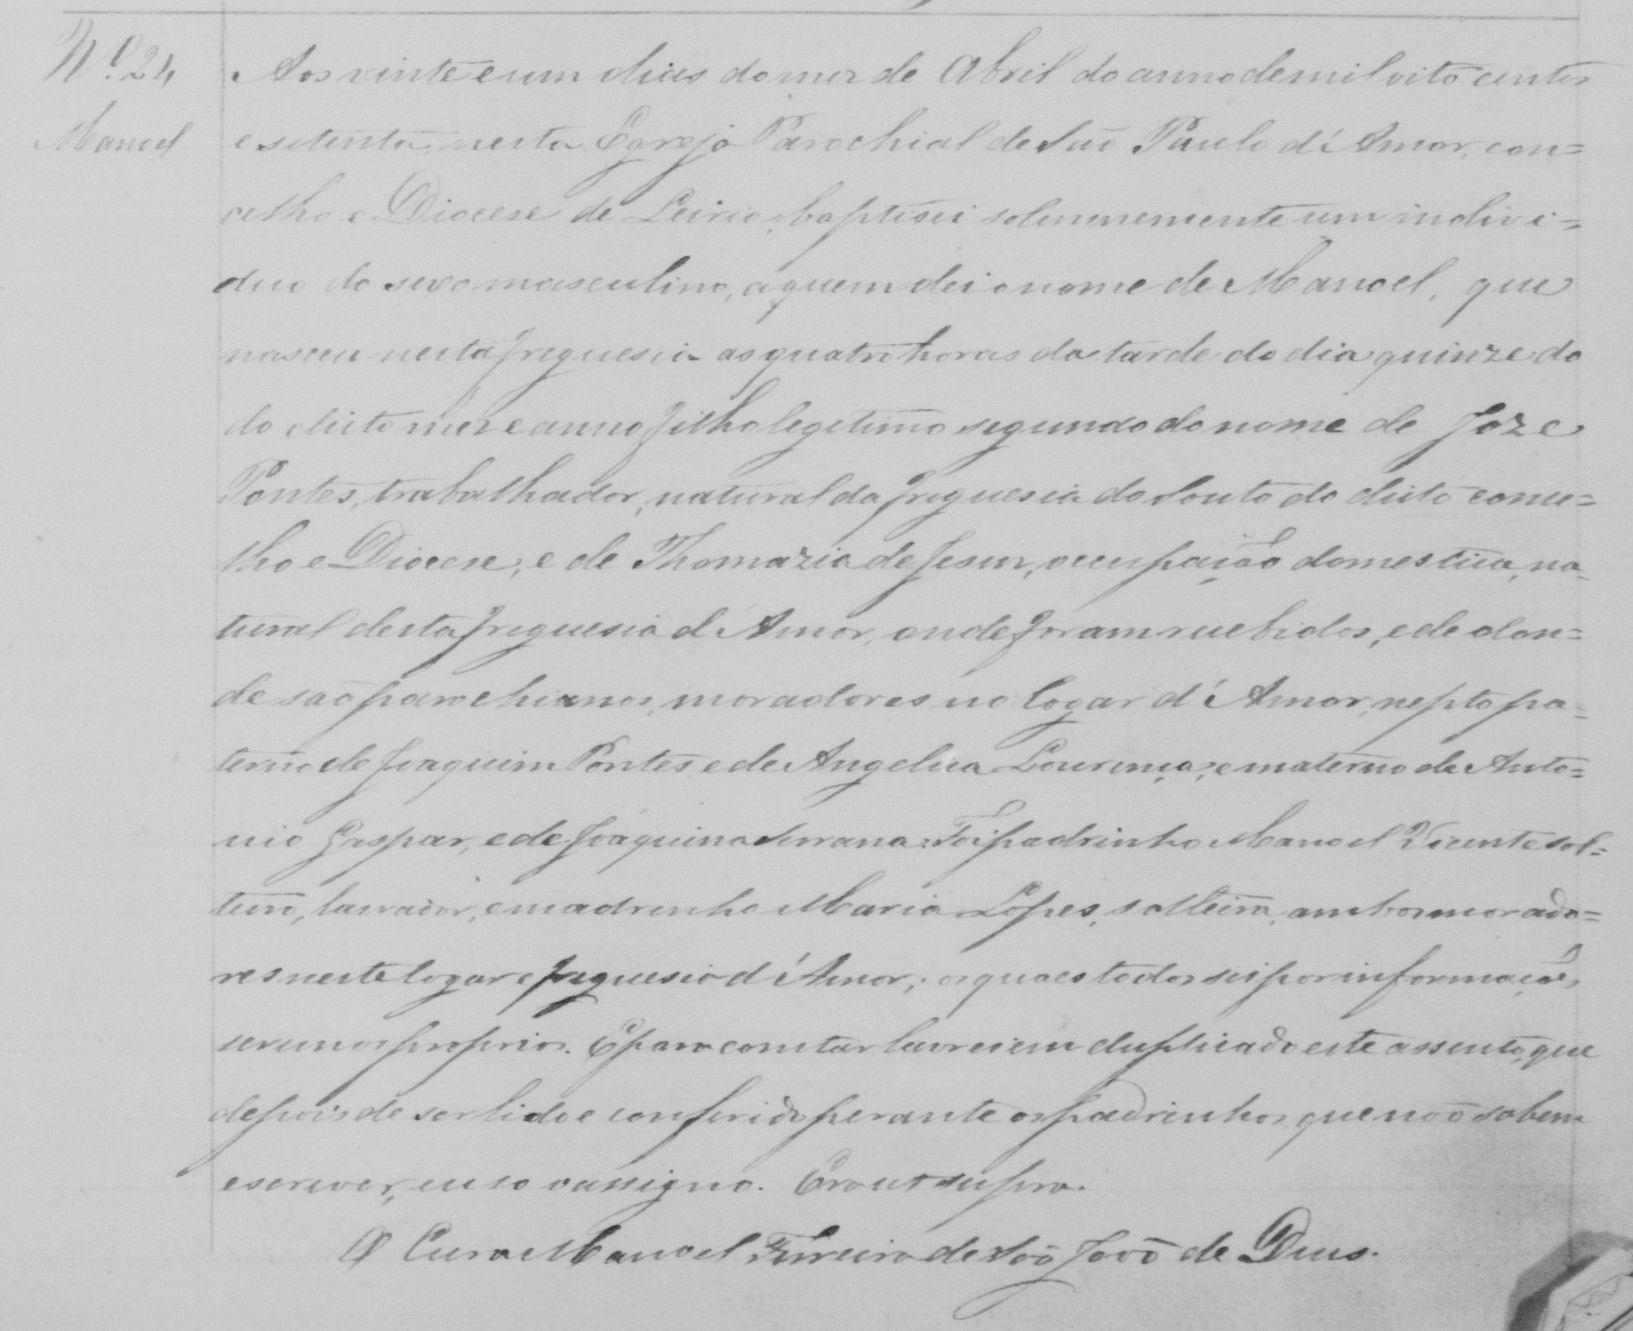 Nº 24
Manoel
Aos vinte e um dias do mez de Abril do anno de mil oito centos
e setenta, nesta Egreja Parochial de São Paulo d'Amor, con=
celho e Diocese de Leiria, baptisei solemnemente um indivi=
duo do sexo masculino, a quem dei o nome de Manoel, que
nasceu nesta freguesia as quatro horas da tarde do dia quinze do
do dicto mez e anno filho legetimo segundo do nome de Joze
Pontes, trabalhador, natural da freguesia do Souto do dicto conce=
lho e Diocese, e de Thomazia de Jesus, occupação domestica, na=
tural desta freguesia d'Amor, onde foram recebidos, e de don=
de são parochianos, moradores no logar d'Amor, nepto pa=
terno de Joaquim Pontes e de Angelica Lourença, e materno de Anto=
nio Gaspar, e de Joaquina Serrana: Foi padrinho Manoel Vicente sol=
teiro, lavrador, e madrinha Maria Lopes, solteira, ambos morado=
res neste logar e freguesia d'Amor; os quaes todos sei por informação
serem os proprios. E para constar lavrei em duplicado este assento, que
depois de ser lido e conferido perante os padrinhos, que não sabem
escrever, eu so o assigno. Era ut supra.
O Cura Manoel Ferreira de São João de Deus.